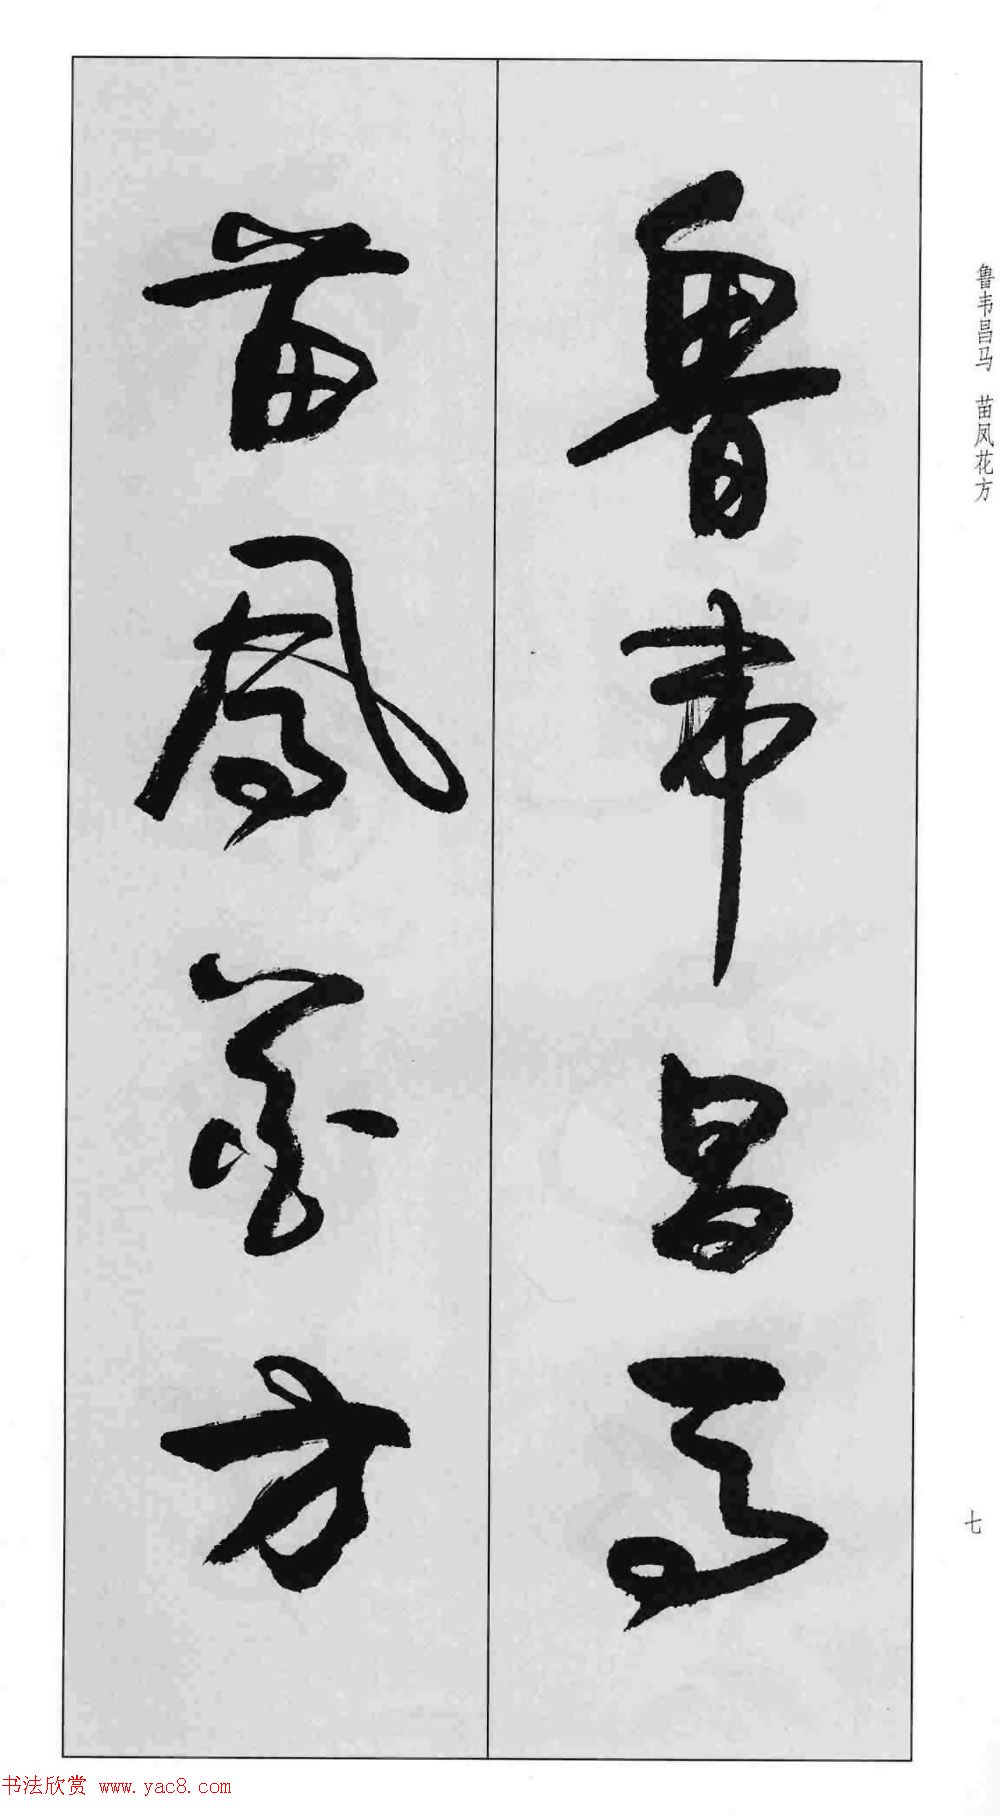 鲁韦昌马 苗凤花方
魯韦昌馬
苗鳳花方
七
书法欣赏 www.yac8.com